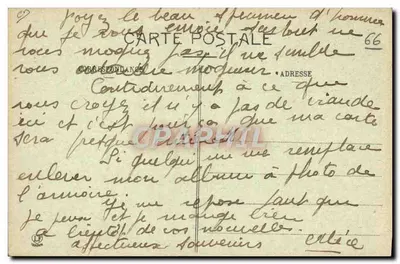 Voyez le beau spécimen d'homme
que je vous envoie surtout ne
CARTE POSTALE
vous moquez pas il me semble
66
vous moqueur
CORRESPONDANCE
ADRESSE
Contrairement à ce que
vous croyez il n'y a pas de viande
ici et c'est pour ça que ma carte
sera presque
Si quelqu'un me remplace
enlever mon album à photo de
l'armoire
Je me repose tant que
je peux et je mange bien
à bientôt de vos nouvelles.
affectueux souvenirs